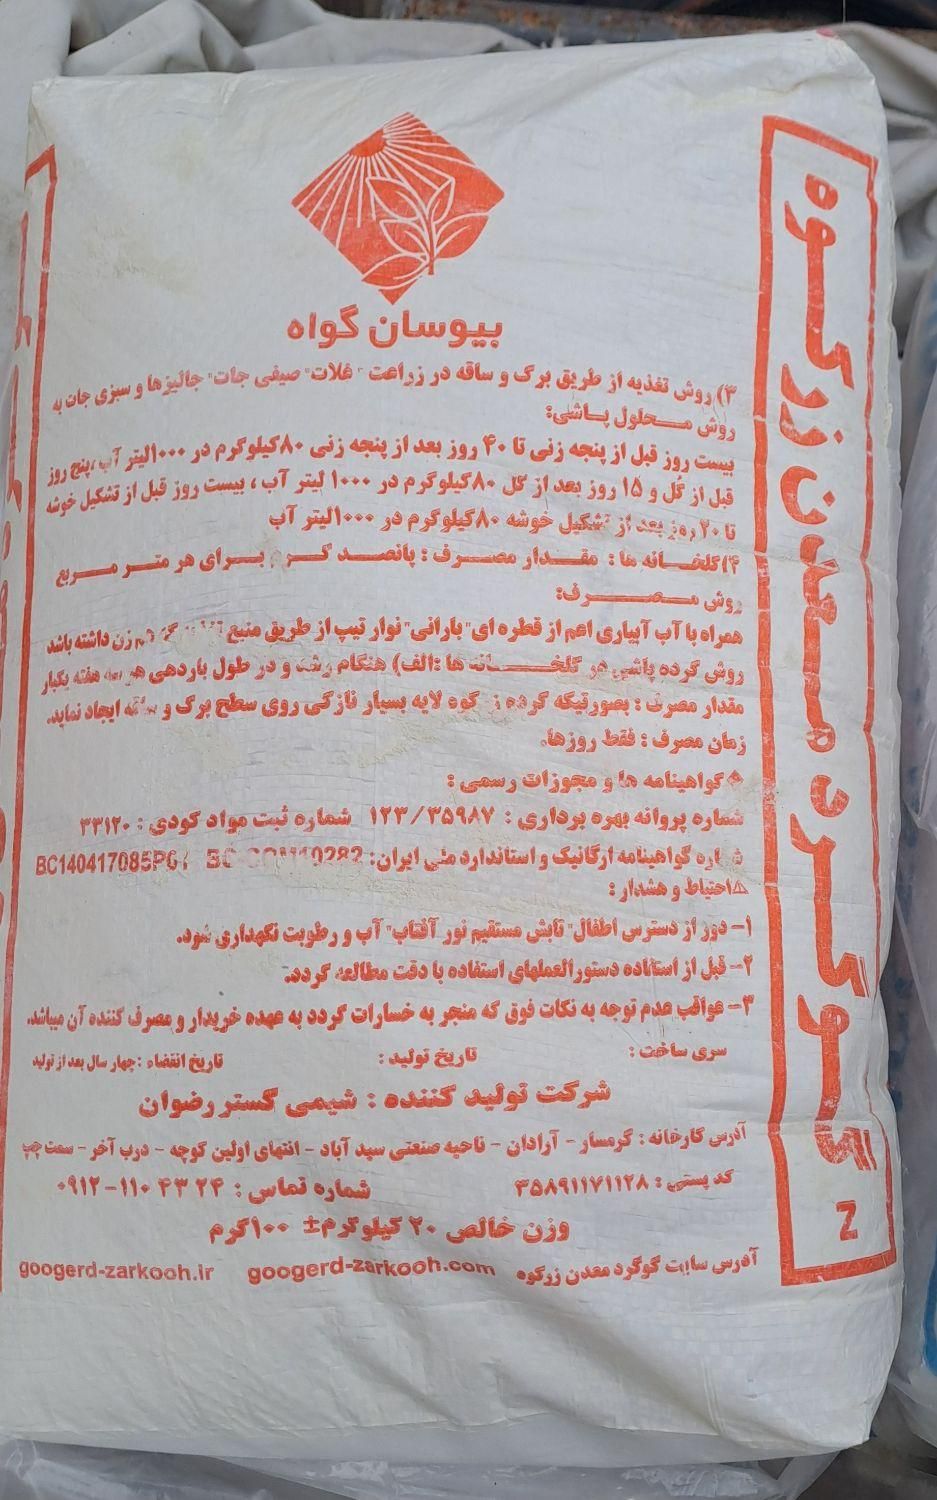 بیوسان گواه
۳) روش تغذیه از طریق برگ و ساقه در زراعت "غلات" صیفی جات" جالیزها و سبزی جات به
روش محلول پاشی:
بیست روز قبل از پنجه زنی تا ۴۰ روز بعد از پنجه زنی ۸۰کیلوگرم در ۱۰۰۰لیتر آب ،پنج روز
قبل از گُل و ۱۵ روز بعد از گل ۸۰کیلوگرم در ۱۰۰۰ لیتر آب ، بیست روز قبل از تشکیل خوشه
تا ۲۰ روز بعد از تشکیل خوشه ۸۰کیلوگرم در ۱۰۰۰لیتر آب
۴)گلخانه ها : مقدار مصرف : پانصد گرم برای هر متر مربع
روش مصرف:
همراه با آب آبیاری اعم از قطره ای" بارانی" نوار تیپ از طریق منبع هم زن داشته باشد
روش گرده پاشی در گلخانه ها :الف) هنگام رشد و در طول باردهی هر سه هفته یکبار
مقدار مصرف : بصورتیکه گرده گوه لایه بسیار نازکی روی سطح برگ و ساقه ایجاد نماید.
زمان مصرف : فقط روزها.
◆گواهینامه ها و مجوزات رسمی :
شماره پروانه بهره برداری : ۱۲۳/۳۵۹۸۷ شماره ثبت مواد کودی : ۳۳۱۲۰
شماره گواهینامه ارگانیک و استاندارد ملی ایران:
⚠احتیاط و هشدار :
۱- دور از دسترس اطفال" تابش مستقیم نور آفتاب" آب و رطوبت نگهداری شود.
۲- قبل از استفاده دستورالعملهای استفاده با دقت مطالعه گردد.
۳- عواقب عدم توجه به نکات فوق که منجر به خسارات گردد به عهده خریدار و مصرف کننده آن میباشد.
سری ساخت : تاریخ تولید : تاریخ انقضاء :چهار سال بعد از تولید
شرکت تولید کننده : شیمی گستر رضوان
آدرس کارخانه : گرمسار - آرادان - ناحیه صنعتی سید آباد - انتهای اولین کوچه - درب آخر - سمت چپ
کد پستی : ۳۵۸۹۱۱۷۱۱۲۸ شماره تماس : ۰۹۱۲-۱۱۰ ۴۳ ۲۴
وزن خالص ۲۰ کیلوگرم± ۱۰۰گرم
آدرس سایت گوگرد معدن زرکوه googerd-zarkooh.com googerd-zarkooh.ir
گوگرد معدن زرکوه
Z